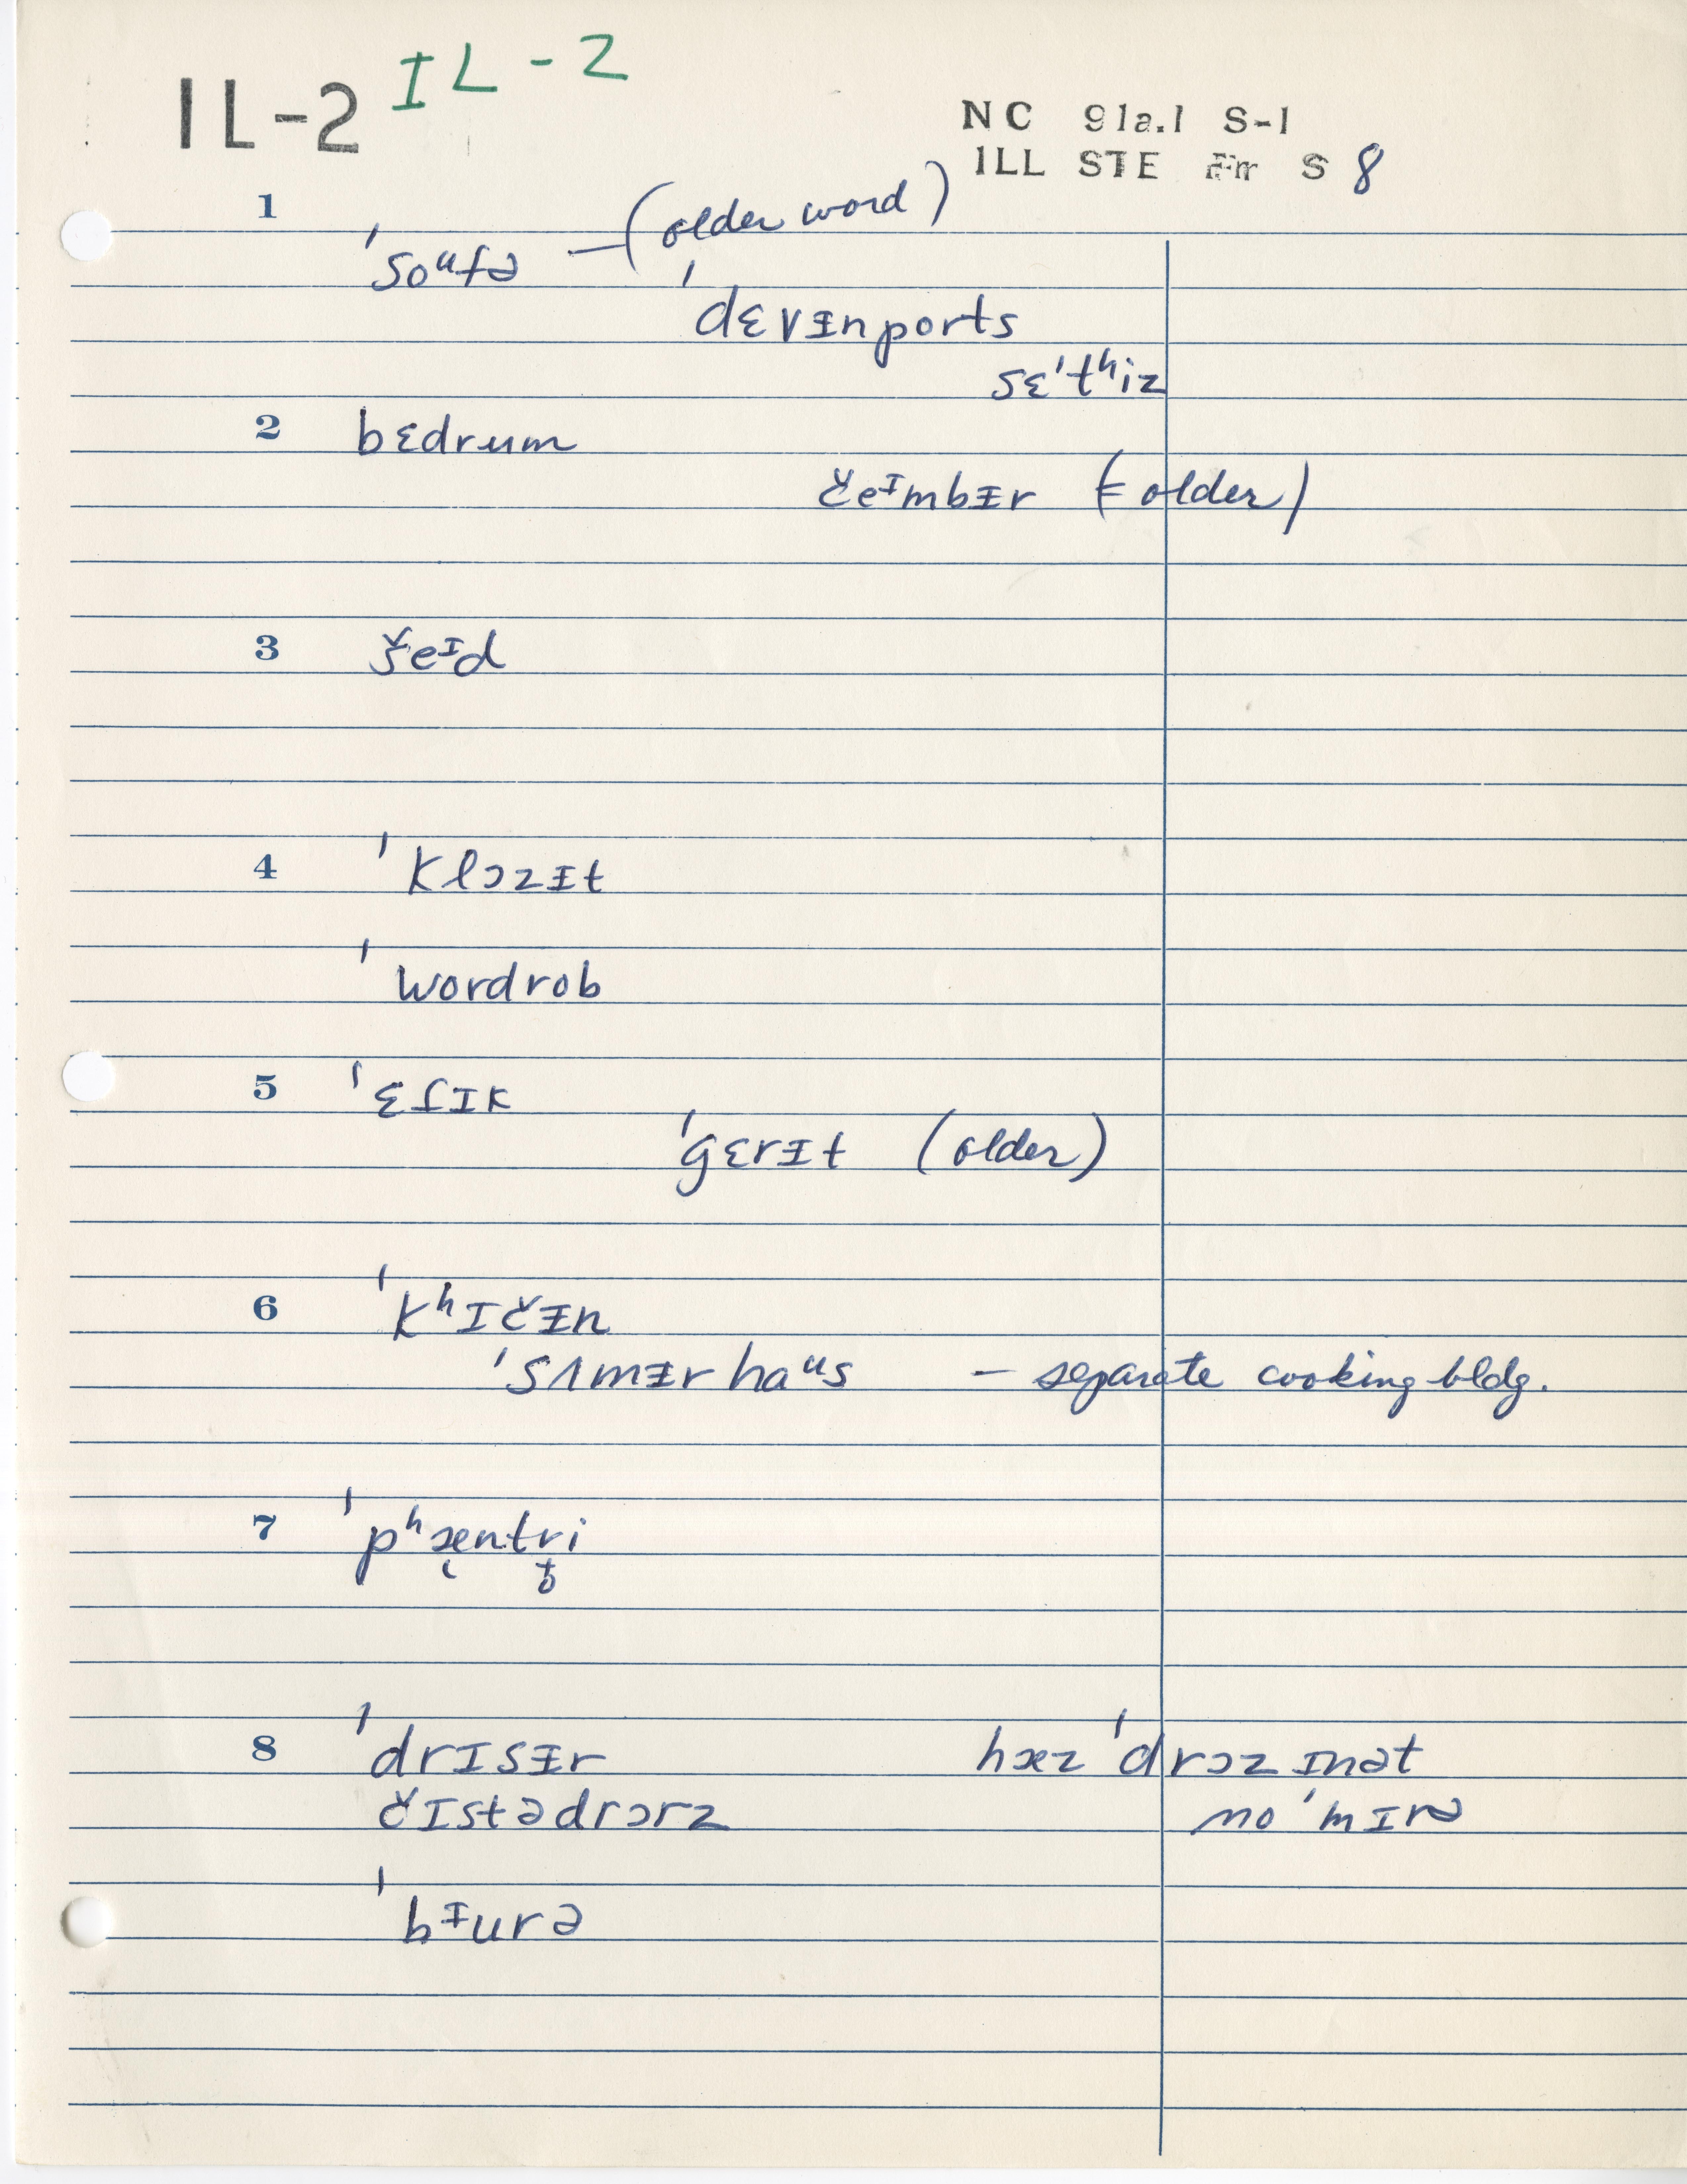 IL-2 IL-2
NC 91a.1 S-1
ILL STE S 8
1 ˈsoᵘfə – (older word)
ˈdɛvᵻnports
sɛˈtʰiz
2 bɛdrum
čeᶦmbᵻr (= older)
3 šeᶦd
4 ˈklɔzᵻt
ˈwordrob
5 ˈɛſIK
ˈgɛrᵻt (older)
6 ˈkʰɪčᵻn
ˈsʌmᵻrhaᵘs – separate cooking bldg.
7 ˈpʰæ̨ntri
8 ˈdrɪsᵻr hæz ˈdrɔz ɪnət
čɪstədrɔrz no ˈmɪrə
ˈbᵻurə